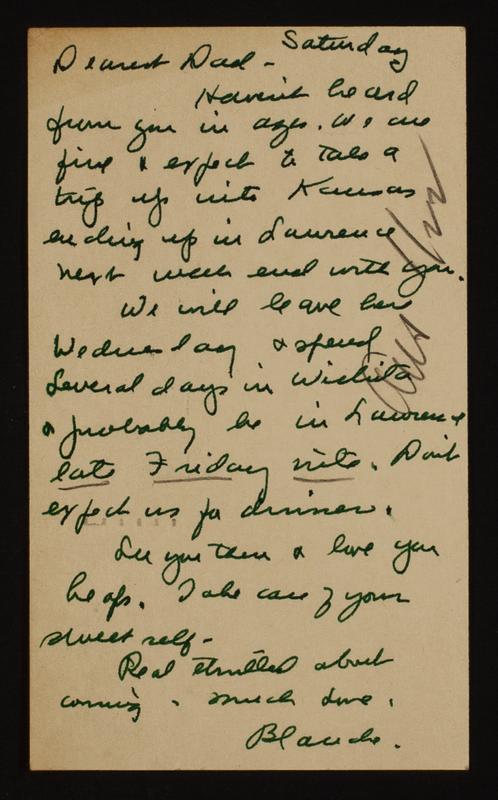 Saturday
Dearest Dad -
Haven't heard
from you in ages. We are
fine & expect to take a
trip up into Kansas
ending up in Lawrence
next week end with you.
We will leave here
Wednesday & spend
several days in Wichita
& probably be in Lawrence
late Friday nite. Don't
expect us for dinner.
See you then & love you
heaps. Take care of your
sweet self -
Real thrilled about
coming. Much love.
Blanche.